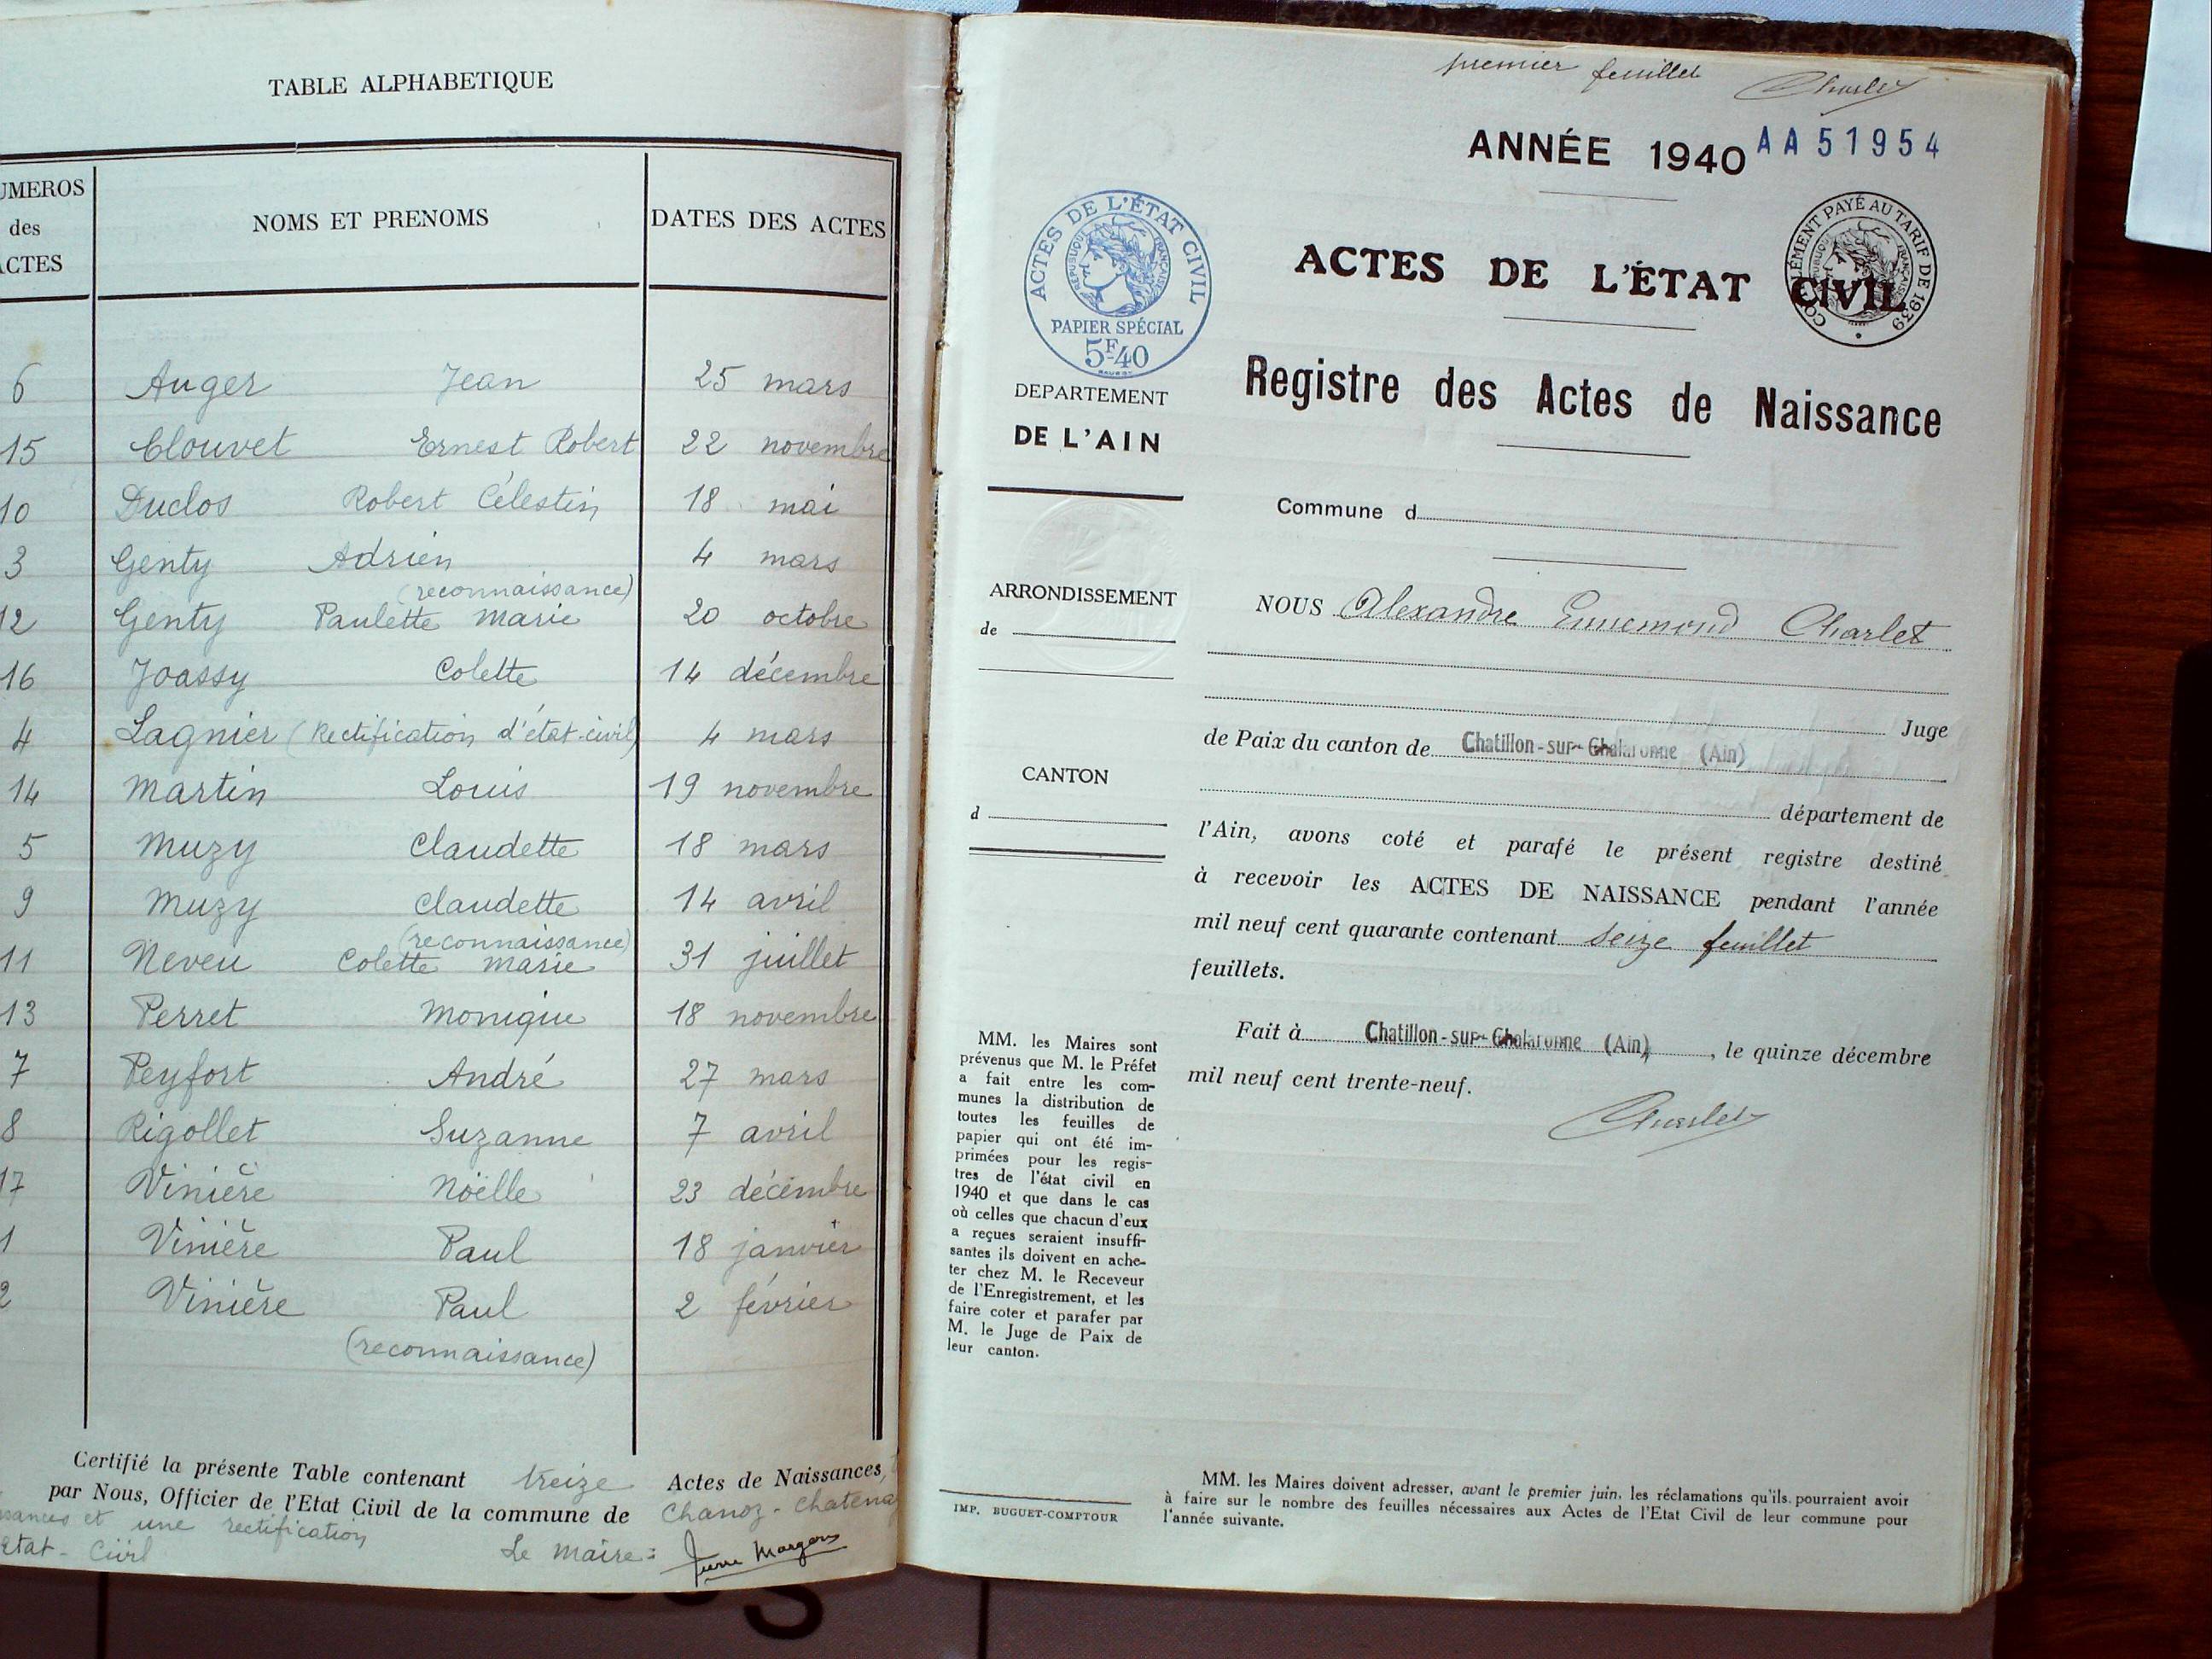 TABLE ALPHABETIQUE
UMEROS
des
ACTES
NOMS ET PRENOMS
DATES DES ACTES
6 Auger Jean 25 mars
15 Clouvet Ernest Robert 22 novembre
10 Duclos Robert Célestin 18 mai
3 Genty Adrien 4 mars
(reconnaissance)
12 Genty Paulette Marie 20 octobre
16 Joassy Colette 14 décembre
4 Lagnier (Rectification d'état-civil) 4 mars
14 Martin Louis 19 novembre
5 Muzy Claudette 18 mars
9 Muzy Claudette 14 avril
(reconnaissance)
11 Neveu Colette Marie 31 juillet
13 Perret Monique 18 novembre
7 Peyfort André 27 mars
8 Rigollet Suzanne 7 avril
17 Vinière Noëlle 23 décembre
1 Vinière Paul 18 janvier
2 Vinière Paul 2 février
(reconnaissance)
Certifié la présente Table contenant treize Actes de Naissances,
par Nous, Officier de l'Etat Civil de la commune de Chanoz-Chatenay
ssances et une rectification
Etat-Civil Le Maire:
premier feuillet Charlet
ANNÉE 1940 AA51954
ACTES DE L'ÉTAT CIVIL
RÉPUBLIQUE FRANÇAISE
PAPIER SPÉCIAL
5F40
COMPLÉMENT PAYÉ AU TARIF DE 1939
ACTES DE L'ÉTAT CIVIL
Registre des Actes de Naissance
DEPARTEMENT
DE L'AIN
Commune d
ARRONDISSEMENT
de
CANTON
d
NOUS Alexandre Ennemond Charlet
Juge
de Paix du canton de Chatillon-sur-Chalaronne (Ain)
département de
l'Ain, avons coté et parafé le présent registre destiné
à recevoir les ACTES DE NAISSANCE pendant l'année
mil neuf cent quarante contenant seize feuillet
feuillets.
Fait à Chatillon-sur-Chalaronne (Ain), le quinze décembre
mil neuf cent trente-neuf.
Charlet
MM. les Maires sont
prévenus que M. le Préfet
a fait entre les com-
munes la distribution de
toutes les feuilles de
papier qui ont été im-
primées pour les regis-
tres de l'état civil en
1940 et que dans le cas
où celles que chacun d'eux
a reçues seraient insuffi-
santes ils doivent en ache-
ter chez M. le Receveur
de l'Enregistrement, et les
faire coter et parafer par
M. le Juge de Paix de
leur canton.
IMP. BUGUET-COMPTOUR
MM. les Maires doivent adresser, avant le premier juin, les réclamations qu'ils pourraient avoir
à faire sur le nombre des feuilles nécessaires aux Actes de l'Etat Civil de leur commune pour
l'année suivante.